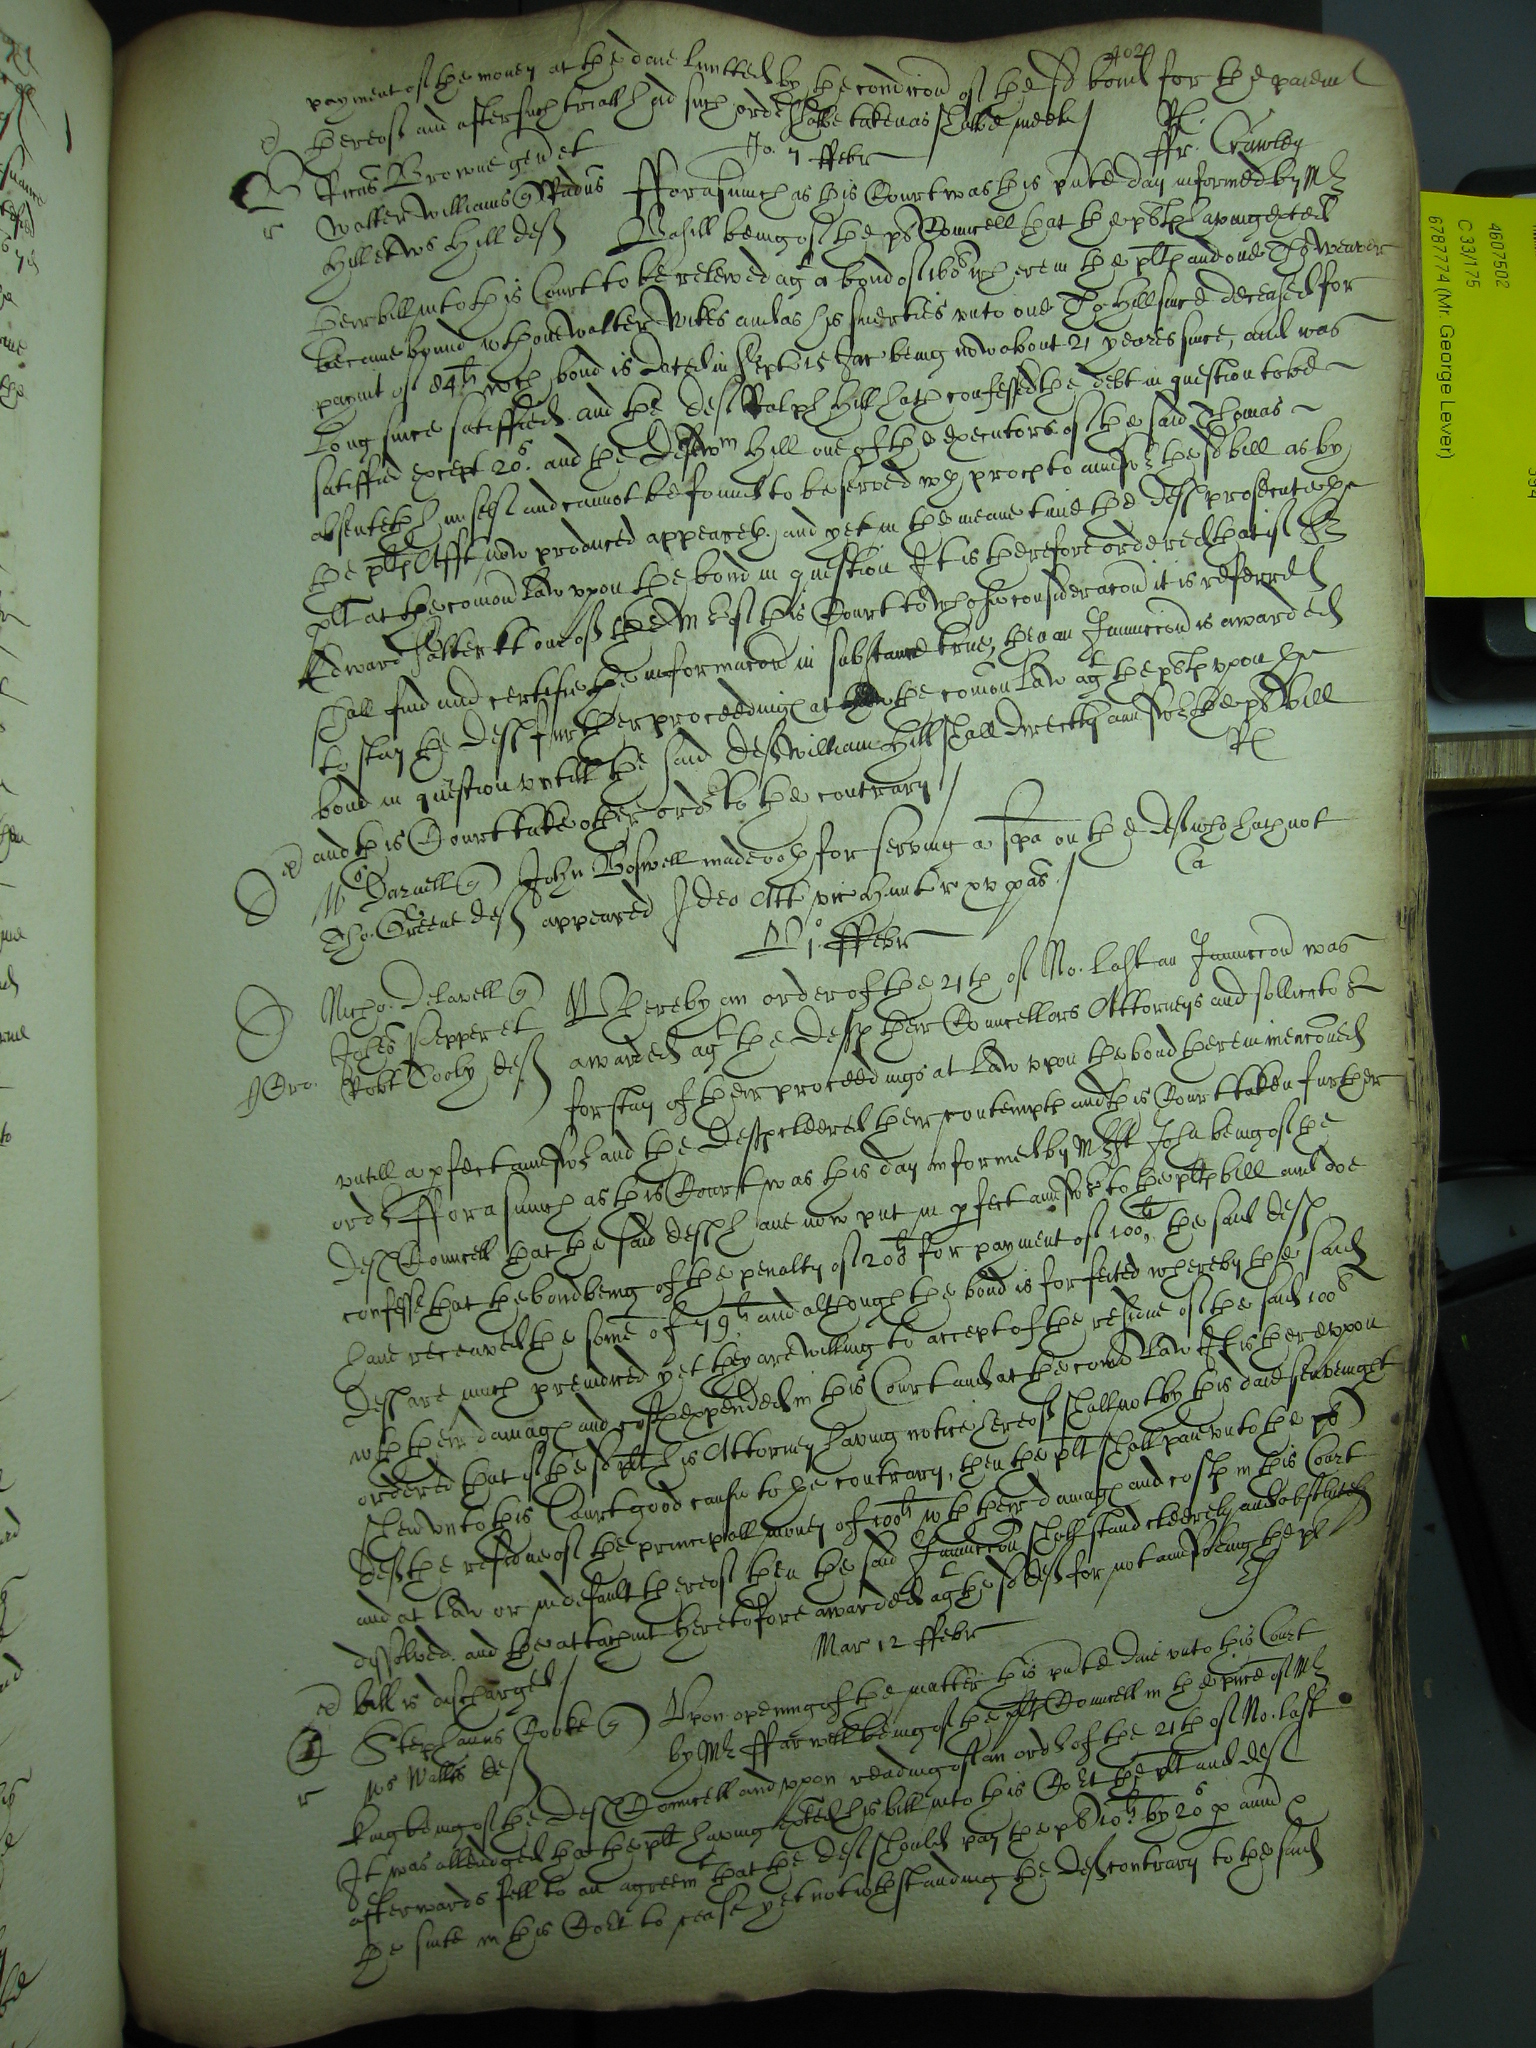 402
payment of the money at the daie limitted by the condicion of the sd bond for the paiemt
thereof and after such triall had such order shalbe taken as shalbe meete
Jo. 7 ffebr
ffr. Crawley
ffrans Browne gen et
Walter Williams Radus
Hill et Ws Hill def
fforasmuch as this Court was this pnte day informed by Mr
being of the pts Councell that the pts having exted
their bill into this Court to be releived agt a bond of wherein the plts and one Tho Weaver
became bound wth one Walter Wikes and as his suerties unto one Tho Hill since deceased for
paymt of 84li wch bond is dated in Sept 15 Jac being now about 21 yeares since, and was
long since satisfied and the def Ralph Hill hath confessed the debt in question to be
satisfied except 20s. and the Deft Wm Hill one of the executors of the said Thomas
absenteth himself and cannot be found to be served wth proces to answer the sd bill as by
the plts Afft now produced appeareth, and yet in the meane time the defts prosecute the
plt at the comon law upon the bond in question It is therefore ordered that if Sr
Edward one of the Mrs of this Court to whose consideracon it is referred
shall find and certifie the informacon in substance true, then an Iniunccon is awarded
to stay the defts further proceedings at the comon law agt the pts upon the
bond in question untill the said deft William Hill shall directly answer the pts bill
and this Court take other order to the contrary
Mr Darnell
Tho. Greene def
John Boswell made oth for serving a spa on the deft who hath not
appeared Ideo Att vic Hunt r xv pas
Ca
1o. ffebr
Nicho. Delavell
Johes Pepper et
Robt Cooby def
Jovis.
Whereby an order of the 21th of No. last an Iniunccon was
awarded agt the defts their Councellors Attorneys and sollicitors
for stay of their proceedings at law upon the bond therein menconed
untill a pfect answer and the defts cleered their contempts and this Court taken further
order fforasmuch as this Court was this day informed by Mr St John being of the
defts Councell that the said defts have now put in pfect answer to the plts bill and doe
confesse that the bond being of the penalty of 200li for payment of 100li, the said defts
have received the some of 79li. and although the bond is forfeited whereby the said
defts are much preiudiced yet they are willing to accept of the residue of the said 100li
wth their damages and costs expended in this Court and at the comon law It is thereupon
ordered that if the sd plt his Attorney having notice hereof shall not by this daie sevenight
shew unto this Court good cause to the contrary, then the plt shall paie unto the sd
defts the residue of the principall money of 100li wth their damages and costs in this Court
and at law or in default thereof then the said Iniunccon shall stand cleerely and absolutely
dissolved. and the attachmt heretofore awarded agt the sd deft for not answering the pl
bill is discharged
Mar 12 ffebr
Stephanus Cooke
Ws Wallis def
Upon opening of the matter this pnte daie unto this Court
by Mr ffarwell being of the plts Councell in the pnce of Mr
King being of the defts Councell and upon reading of an order of the 21th of No. last
It was alleadged that the plt having exted his bill into this Cort the plt and deft
afterwards fell to an agreemt that the deft should pay the plt 10li by 20s p annu
the suite in this Cort to cease yet notwthstanding the deft contrary to the said
4607502
C 33/175
678774 (Mr. George Lever)